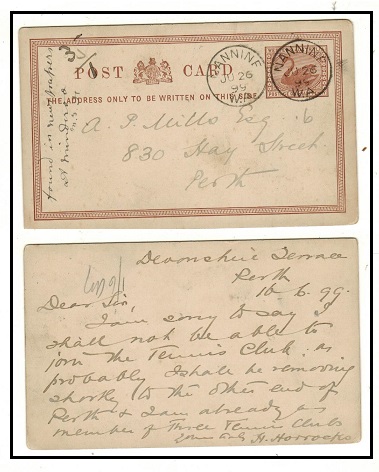 35/
POST CARD
THE ADDRESS ONLY TO BE WRITTEN ON THIS SIDE
NANNINE
JU 26
99
W.A
NANNINE
JU 26
99
W.A
found in newspapers
at
A. P. Mills Esq.
830 Hay Street
Perth
Devonshire Terrace
Perth
16.6.99.
Dear Sir,
I am sorry to say I
shall not be able to
join the Tennis Club. as
probably I shall be removing
shortly to the other end of
Perth & I am already a
member of three Tennis Clubs
yours truly H. Horrocks